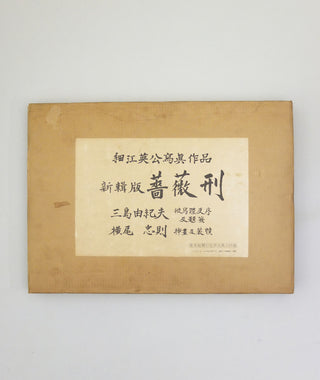 細江英公寫眞作品
新輯版 薔薇刑
三島由紀夫 被寫體及序
及題簽
橫尾 忠則 挿畫及裝幀